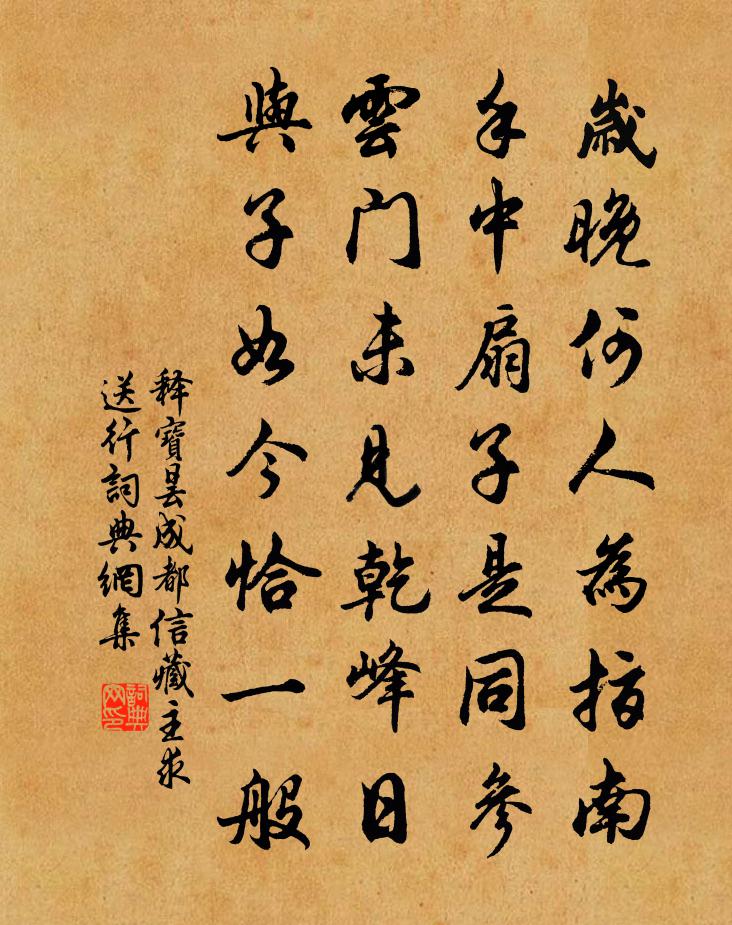 歲晚何人為指南
手中扇子是同參
雲门未見乾峰日
與子如今恰一般
释寶曇成都信藏主求
送行詞典網集
詞典
网印